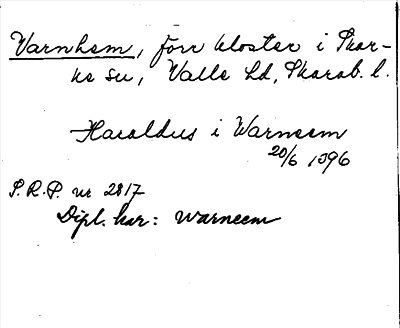 Varnhem, förr kloster i Skar-
ke sn, Valle hd, Skarab. l.
Haraldus i Warneem
20/6 1396
S.R.P. nr 2817
Dipl. har: Warneem